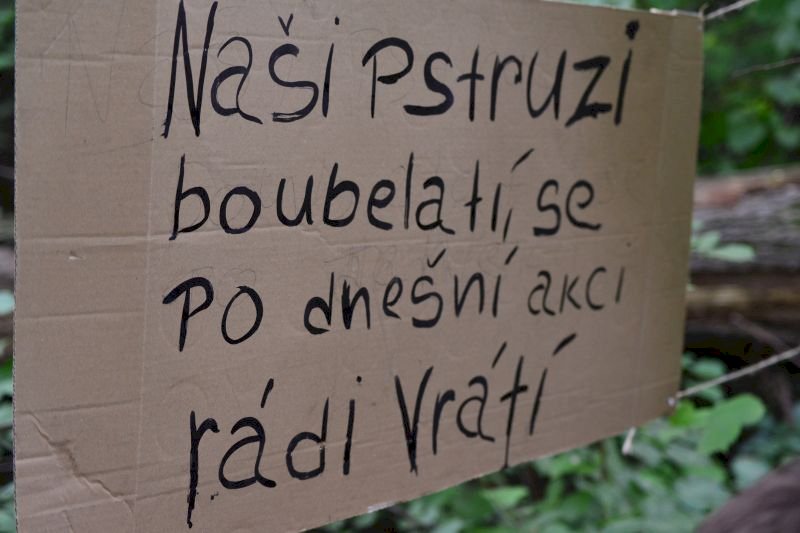 Naši Pstruzi
boubelatí, se
Po dnešní akci
rádi Vrátí